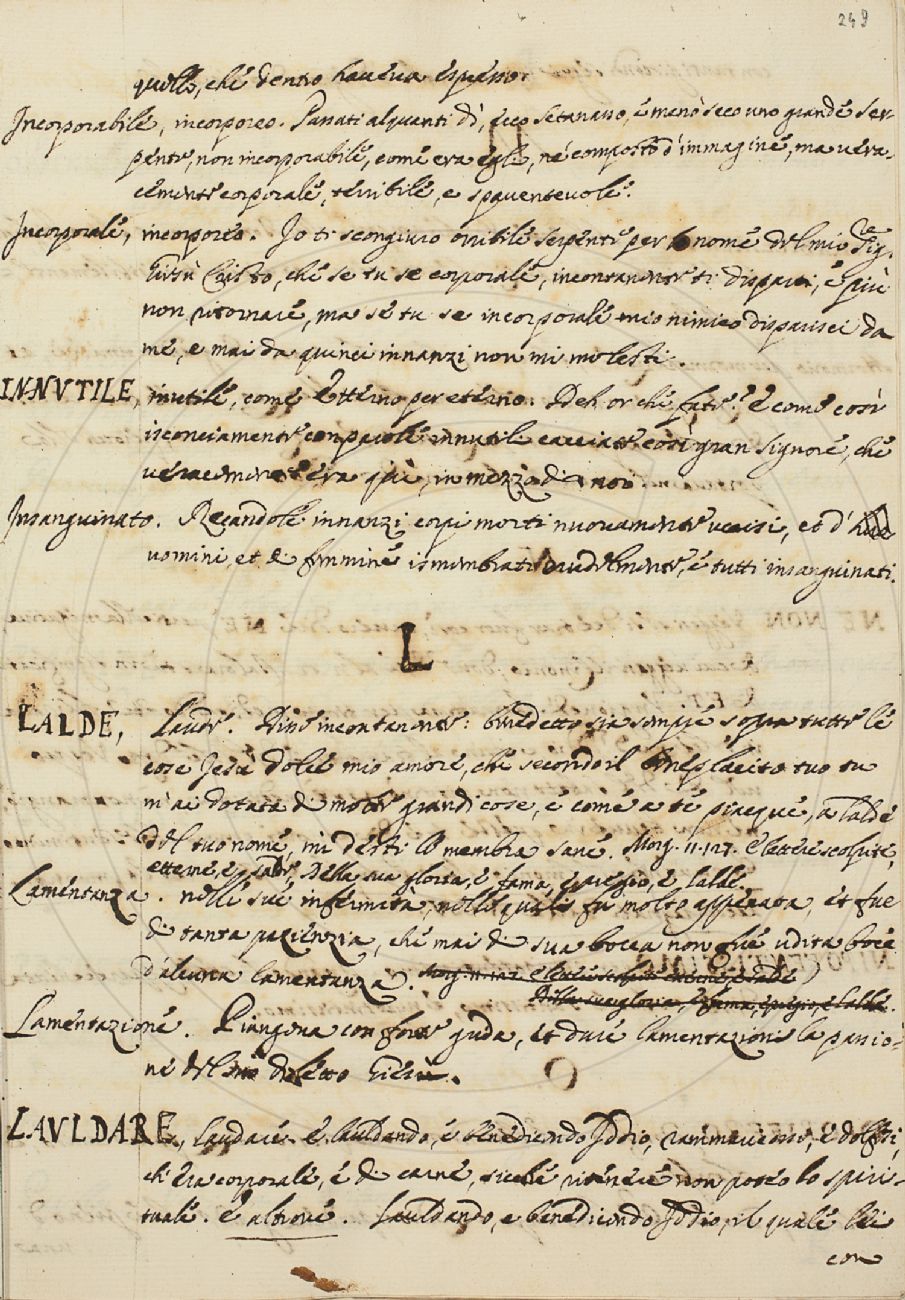 249
quello, che dentro haveva espresso
Incorporabile, incorporeo. Passati alquanti dì, ecco Setanasso, e menò seco uno grande ser-
pente, non incorporabile, come era egli, nè composto d'immagine, ma vera-
cemente corporale, terribile, e spaventevole.
Incorporale, incorporeo. Io ti scongiuro orribile serpente per lo nome del mio Sig.re
Giesù Cristo, che se tu se corporale, incontanente ti disparti, e più
non ritornare, ma se tu se incorporale mio nimico disparisci da
me, e mai da quinci innanzi non mi molesti
INNVTILE, inutile, come etterno per eterno. Deh or che fate? E come così
isconciamente con parole innutile cacciate così gran Signore, che
veracemente era quì, in mezzo di noi
Insanguinato. Recandole innanzi corpi morti nuovamente uccisi, et d'
uomini et di femmine ismembrati crudelmente, e tutti insanguinati.
L
LALDE, Laude. Disse incontanente: benedetto sia sempre sopra tutte le
cose Jesù dolce mio amore, che secondo il beneplacito tuo tu
m'ai dotata di molte grandi cose, e come a te piacque, a lalde
del tuo nome, mi desti le membra sane. Morg. 11.127. E lettere scolpite,
etterne, e salde, Della sua gloria, e fama, e pregio, e lalde.
Lamentanza. nelle sue infermità, nelle quali fu molto appenata, et fue
di tanta pazienzia, che mai di sua bocca non fue udita boce
d'alcuna lamentanza. Morg. 11.127. E lettere scolpite etterne, e salde
Della sua gloria, e fama, e pregio, e lalde.
Lamentazione. Piangeva con forte guda, et dure lamentazioni la passio-
ne del suo diletto Giesù.
LAVLDARE, laudare. E lauldando, e benedicendo Iddio,
ch'era corporale, e di carne, sicchè ritenere non poteo lo spiri-
tuale. e altrove. Lauldando, e benedicendo Iddio, il quale lei
con